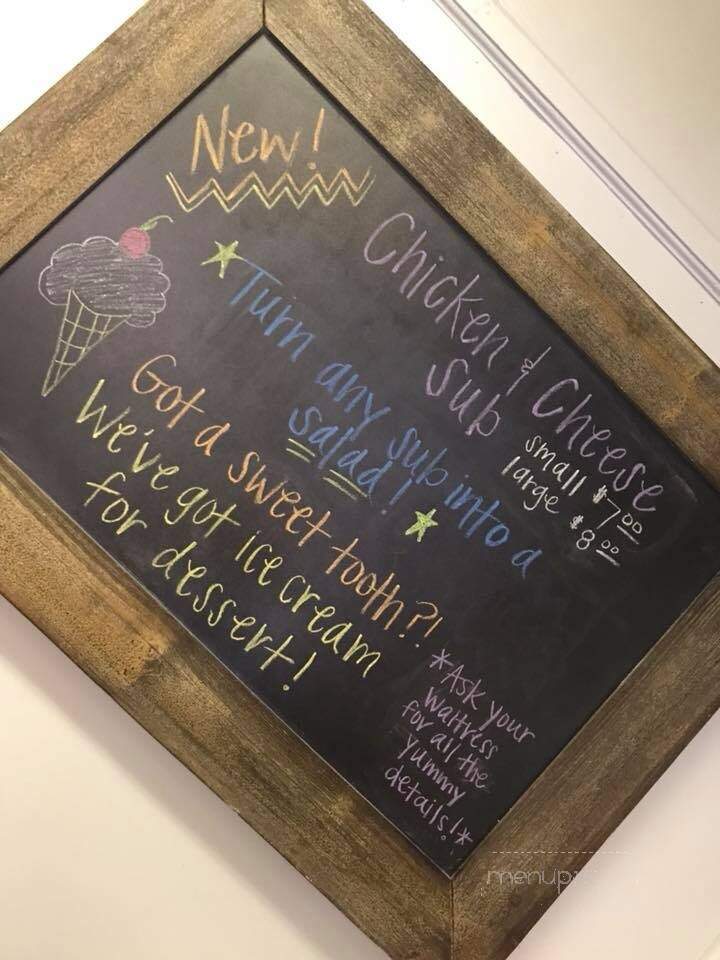 New!
Chicken & Cheese
Sub
small $7.00
large $8.00
Turn any sub into a
salad!
Got a sweet tooth?!
We've got ice cream
for dessert!
*Ask your
waitress
for all the
yummy
details!*